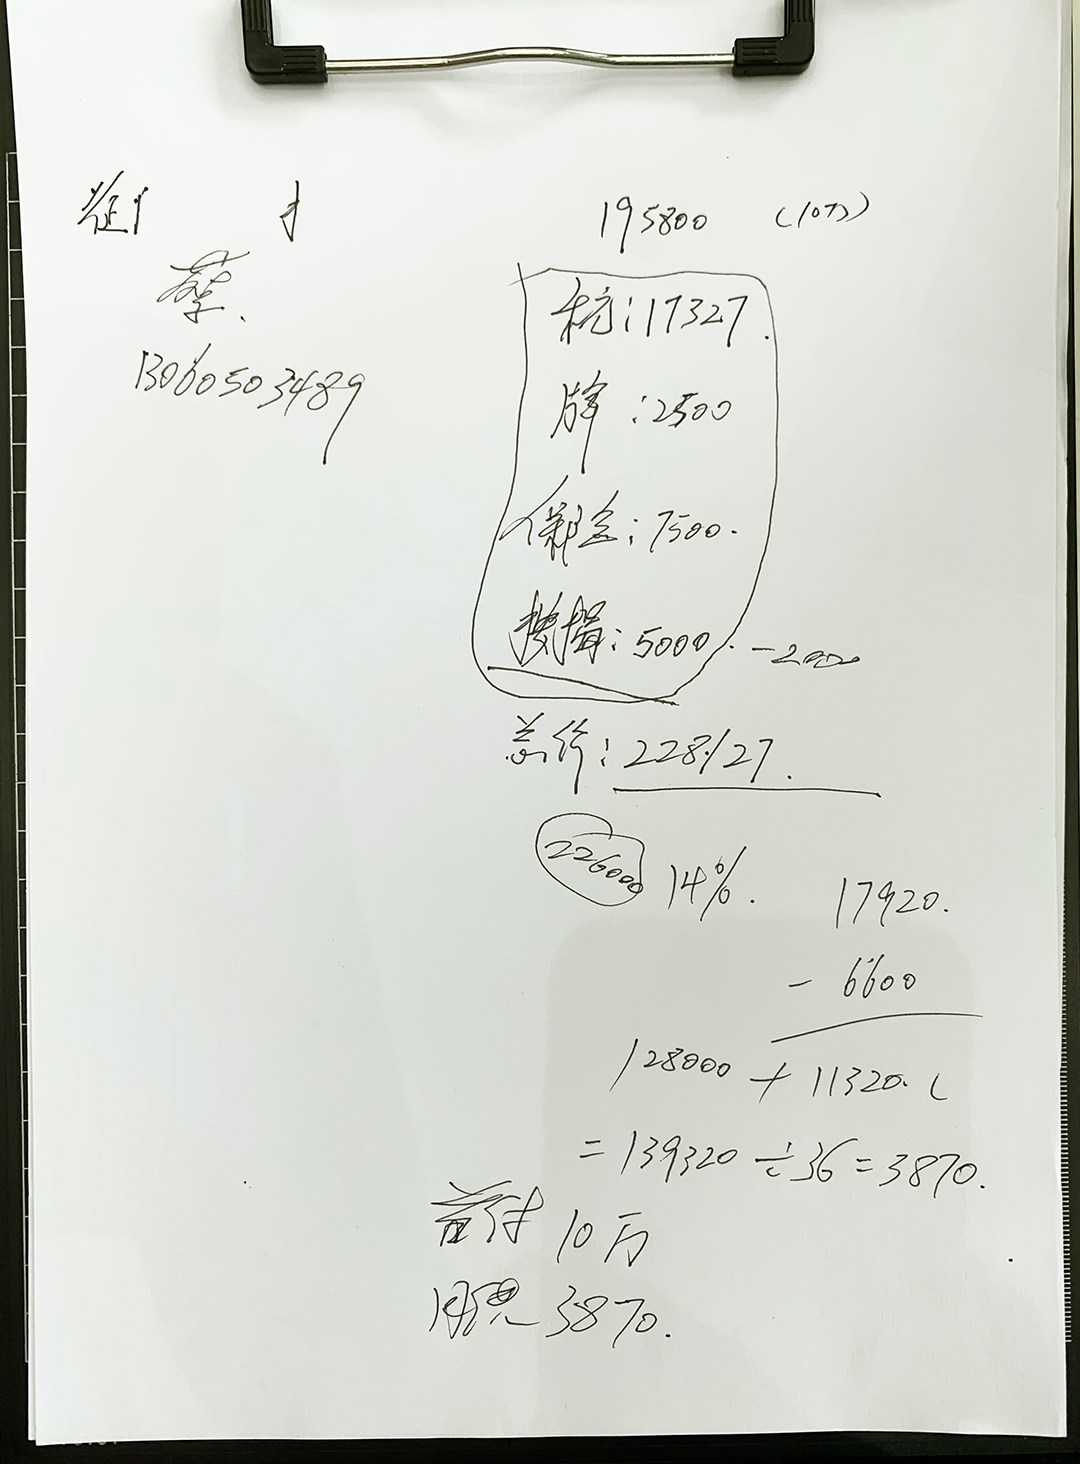 195800
蔡.
13060503489
税:17327.
牌:2500
保险:7500.
按揭:5000. -2000
总价:228127.
226000 14%. 17920.
- 6600
128000 + 11320.
= 139320 ÷ 36 = 3870.
首付 10万
月供 3870.